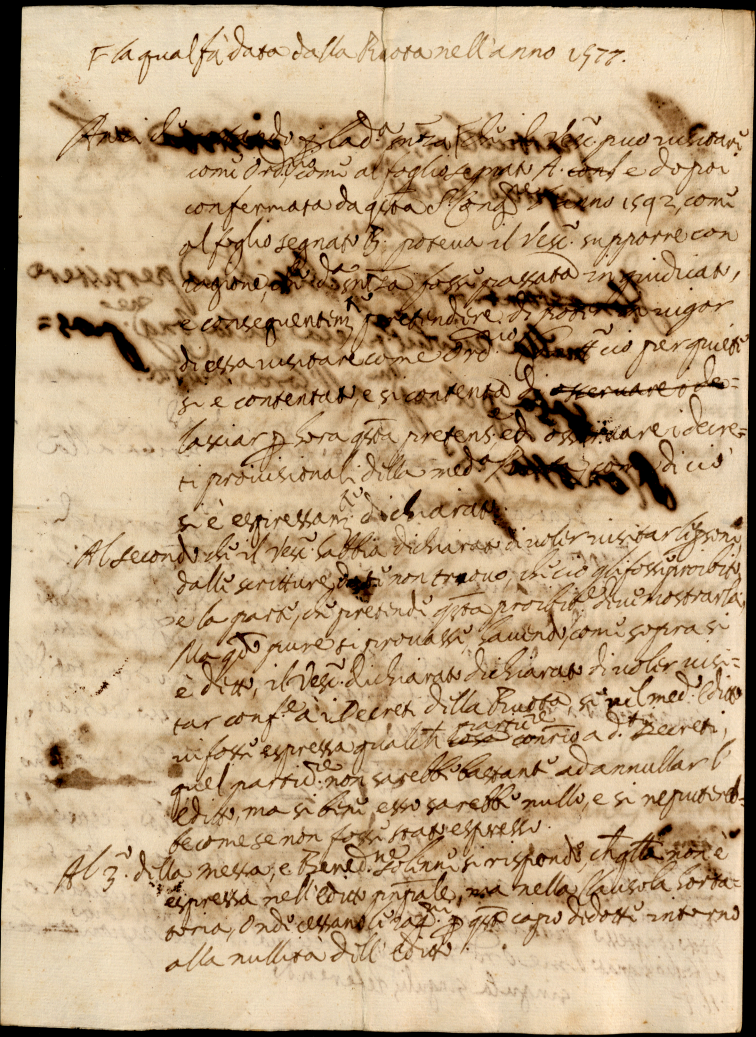 F la qual fù data dalla Ruota nell'anno 1577.
Anzi che la d.ª che il Vesc.º può visitare
come Ord.rio come al foglio segnato A. e dopoi
confermata da q.sta S. Cong.ne l'anno 1592, come
al foglio segnato B. poteva il Vesc.º supporre con
ragione, che d.ª fosse passata in giudicato,
e conseguentem.te pretendere di vigor
di essa visitare come Ord.rio ciò per quiete
si è contentato, e si contenta di osservare o de=
lasciar p hora q.sta pretens.e ed osservare i decre=
ti provisionali della med.ª come di ciò
si è espressam.te dichiarato.
Al secondo che il Vesc.º habbia dichiarato di voler visitar
dalle scritture non trovo, che ciò gli fosse proibito,
e la parte, che pretende q.sta proibit.e deve mostrarla.
Ma q.do pure si provasse havendo come sopra si
è detto, il Vesc.º dichiarato dichiarato di voler visi=
tar conf.e a i Decreti della Ruota, se nel med.º Editto
vi fosse espressa qualche cosa partic.re contrio a d.ti Decreti,
quel partic.re non sarebbe bastante ad annullar l'
editto, ma si bene esso sarebbe nullo, e si reputereb=
be come se non fosse stato espresso.
Al 3.º della messa, e Bened.ne solenne si risponde, che q.lla non è
espressa nell'editto p.n̄pale, ma nella Clausola horta=
toria, Onde cessano le p q.sto capo dedotte intorno
alla nullità dell'Editto.